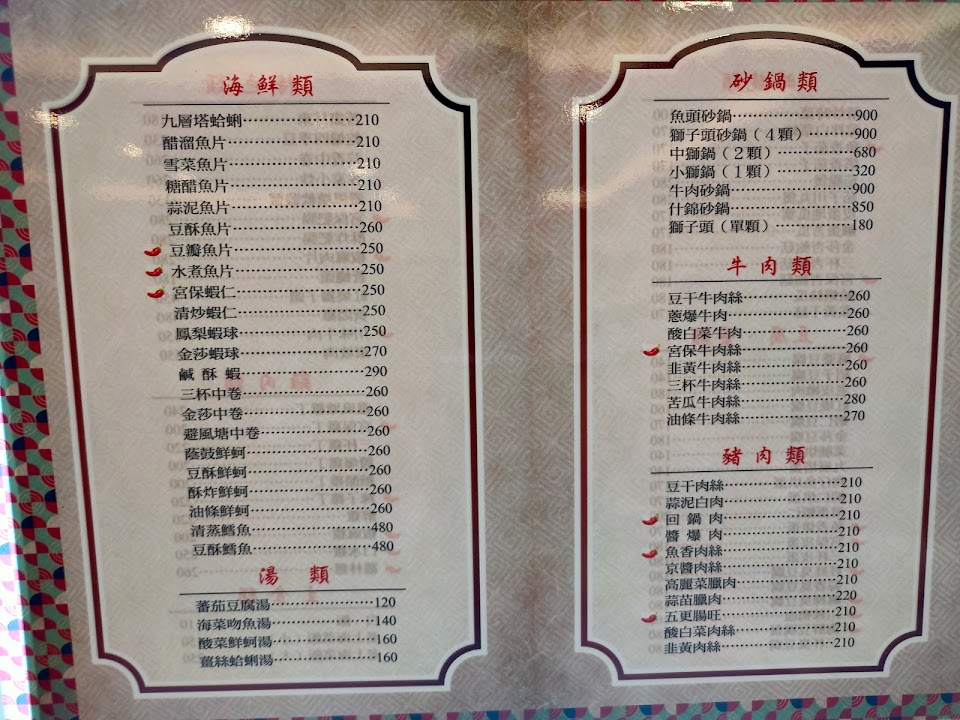 海鮮類
九層塔蛤蜊⋯⋯210
醋溜魚片⋯⋯210
雪菜魚片⋯⋯210
糖醋魚片⋯⋯210
蒜泥魚片⋯⋯210
豆酥魚片⋯⋯260
豆瓣魚片⋯⋯250
水煮魚片⋯⋯250
宮保蝦仁⋯⋯250
清炒蝦仁⋯⋯250
鳳梨蝦球⋯⋯250
金莎蝦球⋯⋯270
鹹酥蝦⋯⋯290
三杯中卷⋯⋯260
金莎中卷⋯⋯260
避風塘中卷⋯⋯260
蔭鼓鮮蚵⋯⋯260
豆酥鮮蚵⋯⋯260
酥炸鮮蚵⋯⋯260
油條鮮蚵⋯⋯260
清蒸鱈魚⋯⋯480
豆酥鱈魚⋯⋯480
湯類
蕃茄豆腐湯⋯⋯120
海菜吻魚湯⋯⋯140
酸菜鮮蚵湯⋯⋯160
薑絲蛤蜊湯⋯⋯160
砂鍋類
魚頭砂鍋⋯⋯900
獅子頭砂鍋（4顆）⋯⋯900
中獅鍋（2顆）⋯⋯680
小獅鍋（1顆）⋯⋯320
牛肉砂鍋⋯⋯900
什錦砂鍋⋯⋯850
獅子頭（單顆）⋯⋯180
牛肉類
豆干牛肉絲⋯⋯260
蔥爆牛肉⋯⋯260
酸白菜牛肉⋯⋯260
宮保牛肉絲⋯⋯260
韭黃牛肉絲⋯⋯260
三杯牛肉絲⋯⋯260
苦瓜牛肉絲⋯⋯280
油條牛肉絲⋯⋯270
豬肉類
豆干肉絲⋯⋯210
蒜泥白肉⋯⋯210
回鍋肉⋯⋯210
醬爆肉⋯⋯210
魚香肉絲⋯⋯210
京醬肉絲⋯⋯210
高麗菜臘肉⋯⋯210
蒜苗臘肉⋯⋯220
五更腸旺⋯⋯210
酸白菜肉絲⋯⋯210
韭黃肉絲⋯⋯210